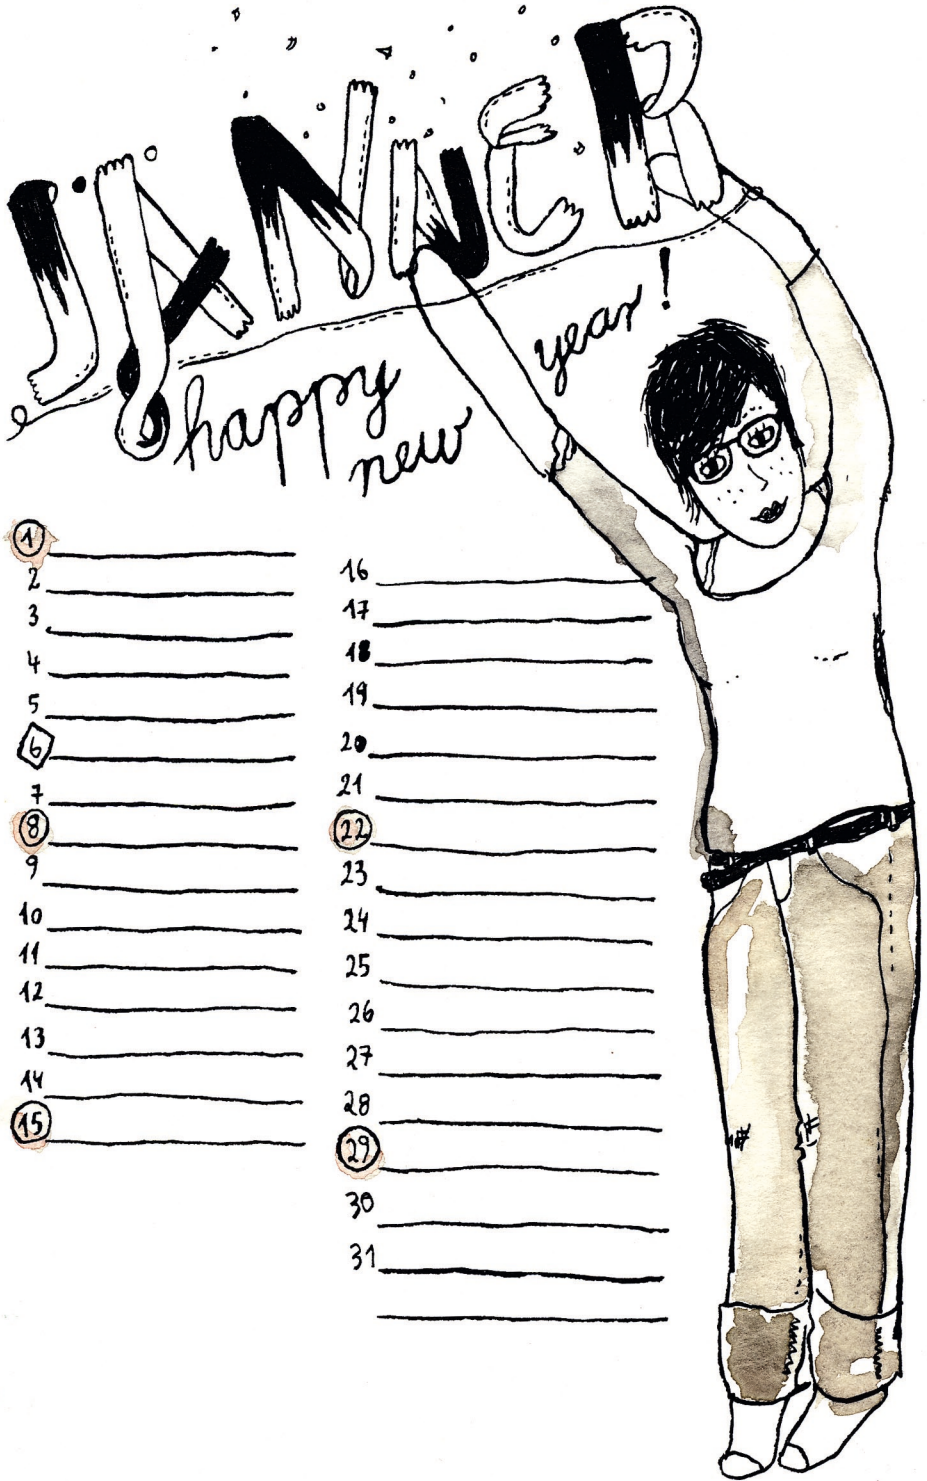 JÄNNER
happy
new
year!
1
2
3
4
5
6
7
8
9
10
11
12
13
14
15
16
17
18
19
20
21
22
23
24
25
26
27
28
29
30
31